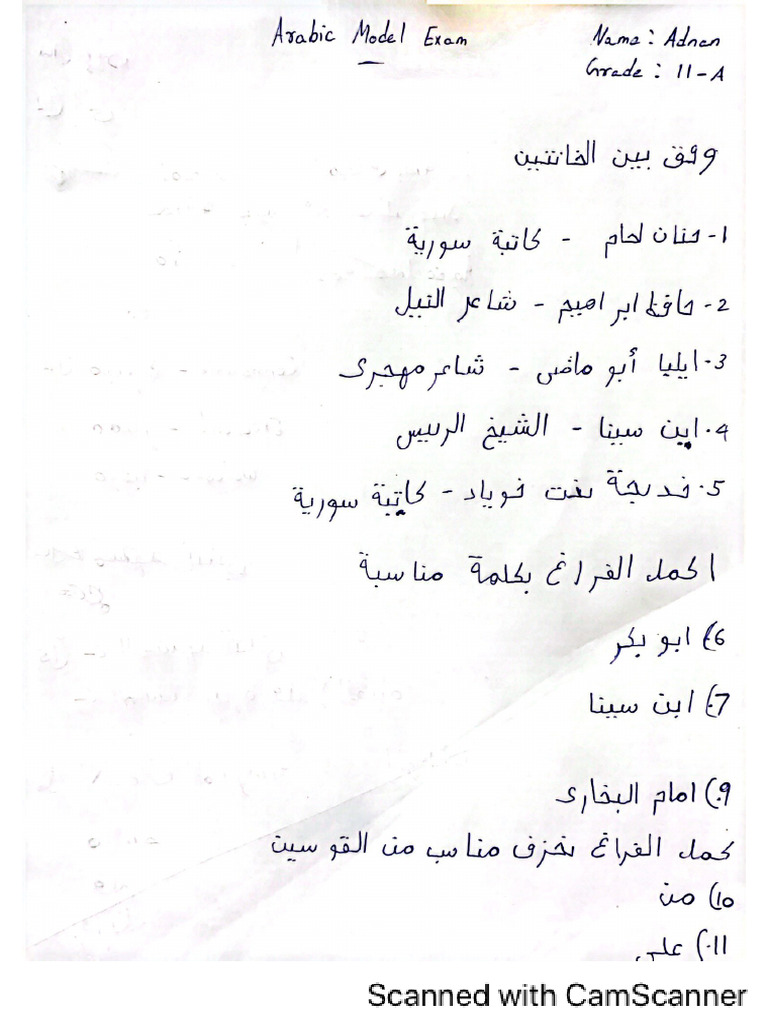 Arabic Model Exam
Name: Adnan
Grade: 11-A
وفق بين الخانتين
1- حنان لحام - كاتبة سورية
2- حافظ ابراهيم - شاعر النيل
3- ايليا أبو ماضى - شاعر مهجرى
4- اين سينا - الشيخ الرييس
5- خديجة بنت خوياد - كاتبة سورية
اكمل الفراغ بكلمة مناسبة
6) ابو بكر
7) ابن سينا
9) امام البخارى
كمل الفراغ بحزف مناسب من القوسين
10) من
11) على
Scanned with CamScanner